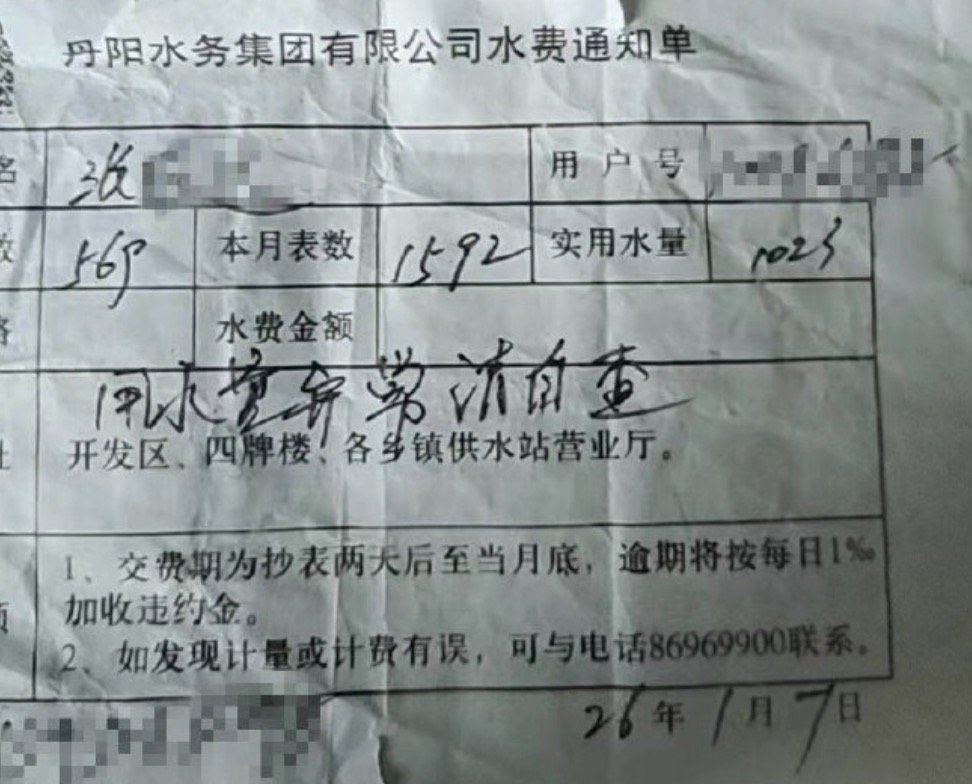 丹阳水务集团有限公司水费通知单
名 张 用户号
数 569 本月表数 1592 实用水量 1023
格 水费金额
用水量异常请自查
址 开发区、四牌楼、各乡镇供水站营业厅。
1、交费期为抄表两天后至当月底，逾期将按每日1‰
加收违约金。
项 2、如发现计量或计费有误，可与电话86969900联系。
26年1月7日